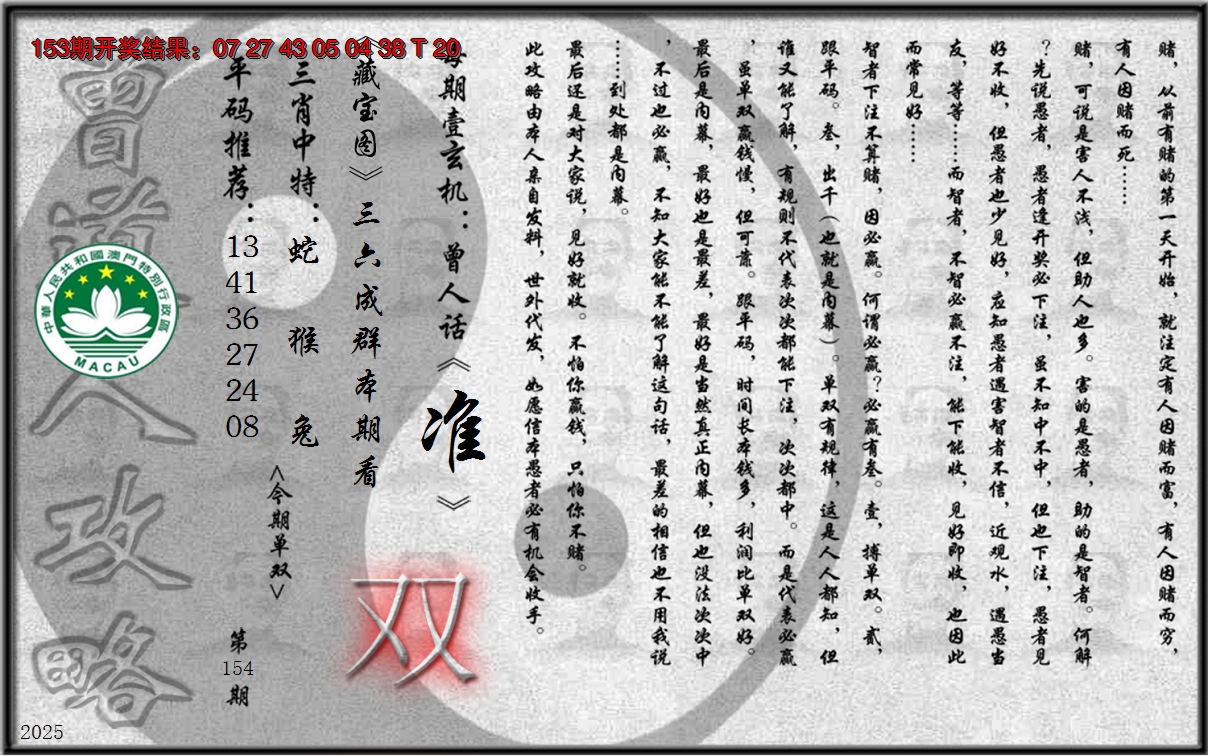 153期开奖结果：07 27 43 05 04 38 T 20
赌，从前有赌的第一天开始，就注定有人因赌而富，有人因赌而穷，
有人因赌而死……
赌，可说是害人不浅，但助人也多。害的是愚者，助的是智者。何解
？先说愚者，愚者逢开奖必下注，虽不知中不中，但也下注，愚者见
好不收，但愚者也少见好，应知愚者遇害智者不信，近观水，遇愚当
友，等等……而智者，不智必赢不注，能下能收，见好即收，也因此
而常见好……
智者下注不算赌，因必赢。何谓必赢？必赢有叁。壹，搏单双。贰，
跟平码。叁，出千（也就是内幕）。单双有规律，这是人人都知，但
谁又能了解，有规则不代表次次都能下注，次次都中。而是代表必赢
，虽单双赢钱慢，但可靠。跟平码，时间长本钱多，利润比单双好。
最后是内幕，最好也是最差，最好是当然真正内幕，但也没法次次中
，不过也必赢，不知大家能不能了解这句话，最差的相信也不用我说
……到处都是内幕。
最后还是对大家说，见好就收。不怕你赢钱，只怕你不赌。
此攻略由本人亲自发料，世外代发，如愿信本愚者必有机会收手。
每期壹玄机：曾人话《准》
《藏宝图》三六成群本期看
双
三肖中特：蛇 猴 兔
<今期单双>
平码推荐：
13
41
36
27
24
08
第
154
期
曾道人攻略
中華人民共和國澳門特別行政區
MACAU
2025